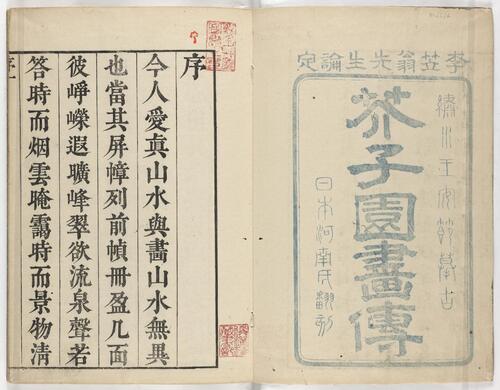 李笠翁先生論定
繡水王安節摹古
芥子園畫傳
日本河南氏翻刻
序
今人愛真山水與畫山水無異
也當其屏幛列前幀冊盈几面
彼崢嶸遐曠峰翠欲流泉聲若
答時而烟雲晻靄時而景物清